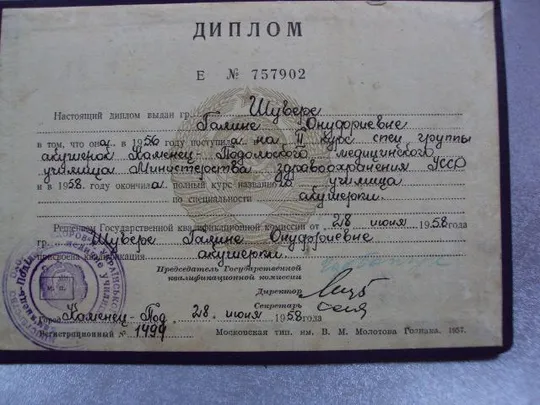 ДИПЛОМ
Е № 757902
Настоящий диплом выдан гр. Шувере
Галине Онуфриевне
в том, что она в 1956 году поступила на II курс спец группы
акушерок Каменец-Подольского медицинского
училища Министерства здравоохранения УССР
и в 1958 году окончила полный курс названного училища
по специальности акушерки.
Решением Государственной квалификационной комиссии от 28 июня 1958 года
гр. Шувере Галине Онуфриевне
присвоена квалификация акушерки.
Председатель Государственной
квалификационной комиссии
Директор
Секретарь
М. П.
Город Каменец-Под. 28 июня 1958 года
Регистрационный № 1499
Московская тип. им. В. М. Молотова Гознака. 1957.